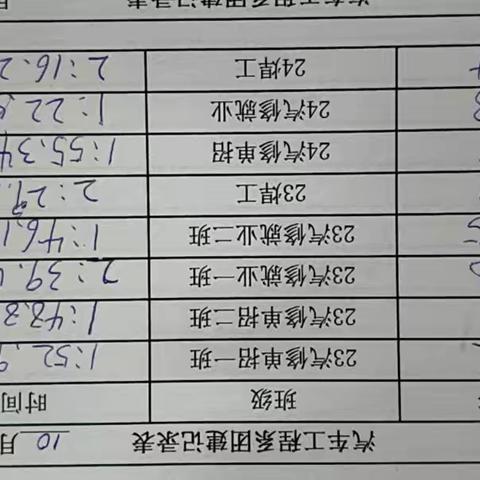 汽车工程系团建记录表 10 月
班级 时间
23汽修单招一班 1:52.9
23汽修单招二班 1:48.8
23汽修就业一班 2:39.
23汽修就业二班 1:46.1
23焊工 2:29.
24汽修单招 1:55.34
24汽修就业 1:22.
24焊工 2:16.2
汽车工程系团建记录表 月